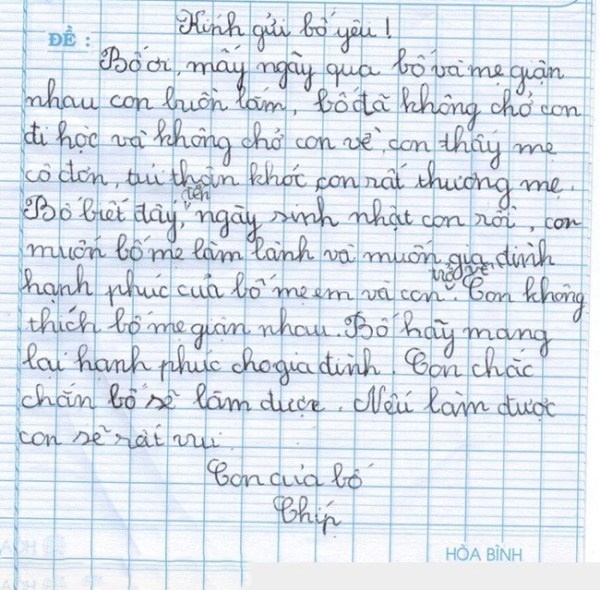 Kính gửi bố yêu!
ĐỀ :
Bố ơi, mấy ngày qua bố và mẹ giận
nhau con buồn lắm, bố đã không chở con
đi học và không chở con về, con thấy mẹ
cô đơn, tủi thân khóc con rất thương mẹ.
Bố biết đấy, đến ngày sinh nhật con rồi, con
muốn bố mẹ làm lành và muốn gia đình
hạnh phúc của bố mẹ em và con trở về. Con không
thích bố mẹ giận nhau. Bố hãy mang
lại hạnh phúc cho gia đình. Con chắc
chắn bố sẽ làm được. Nếu làm được
con sẽ rất vui.
Con của bố
Chíp
HÒA BÌNH